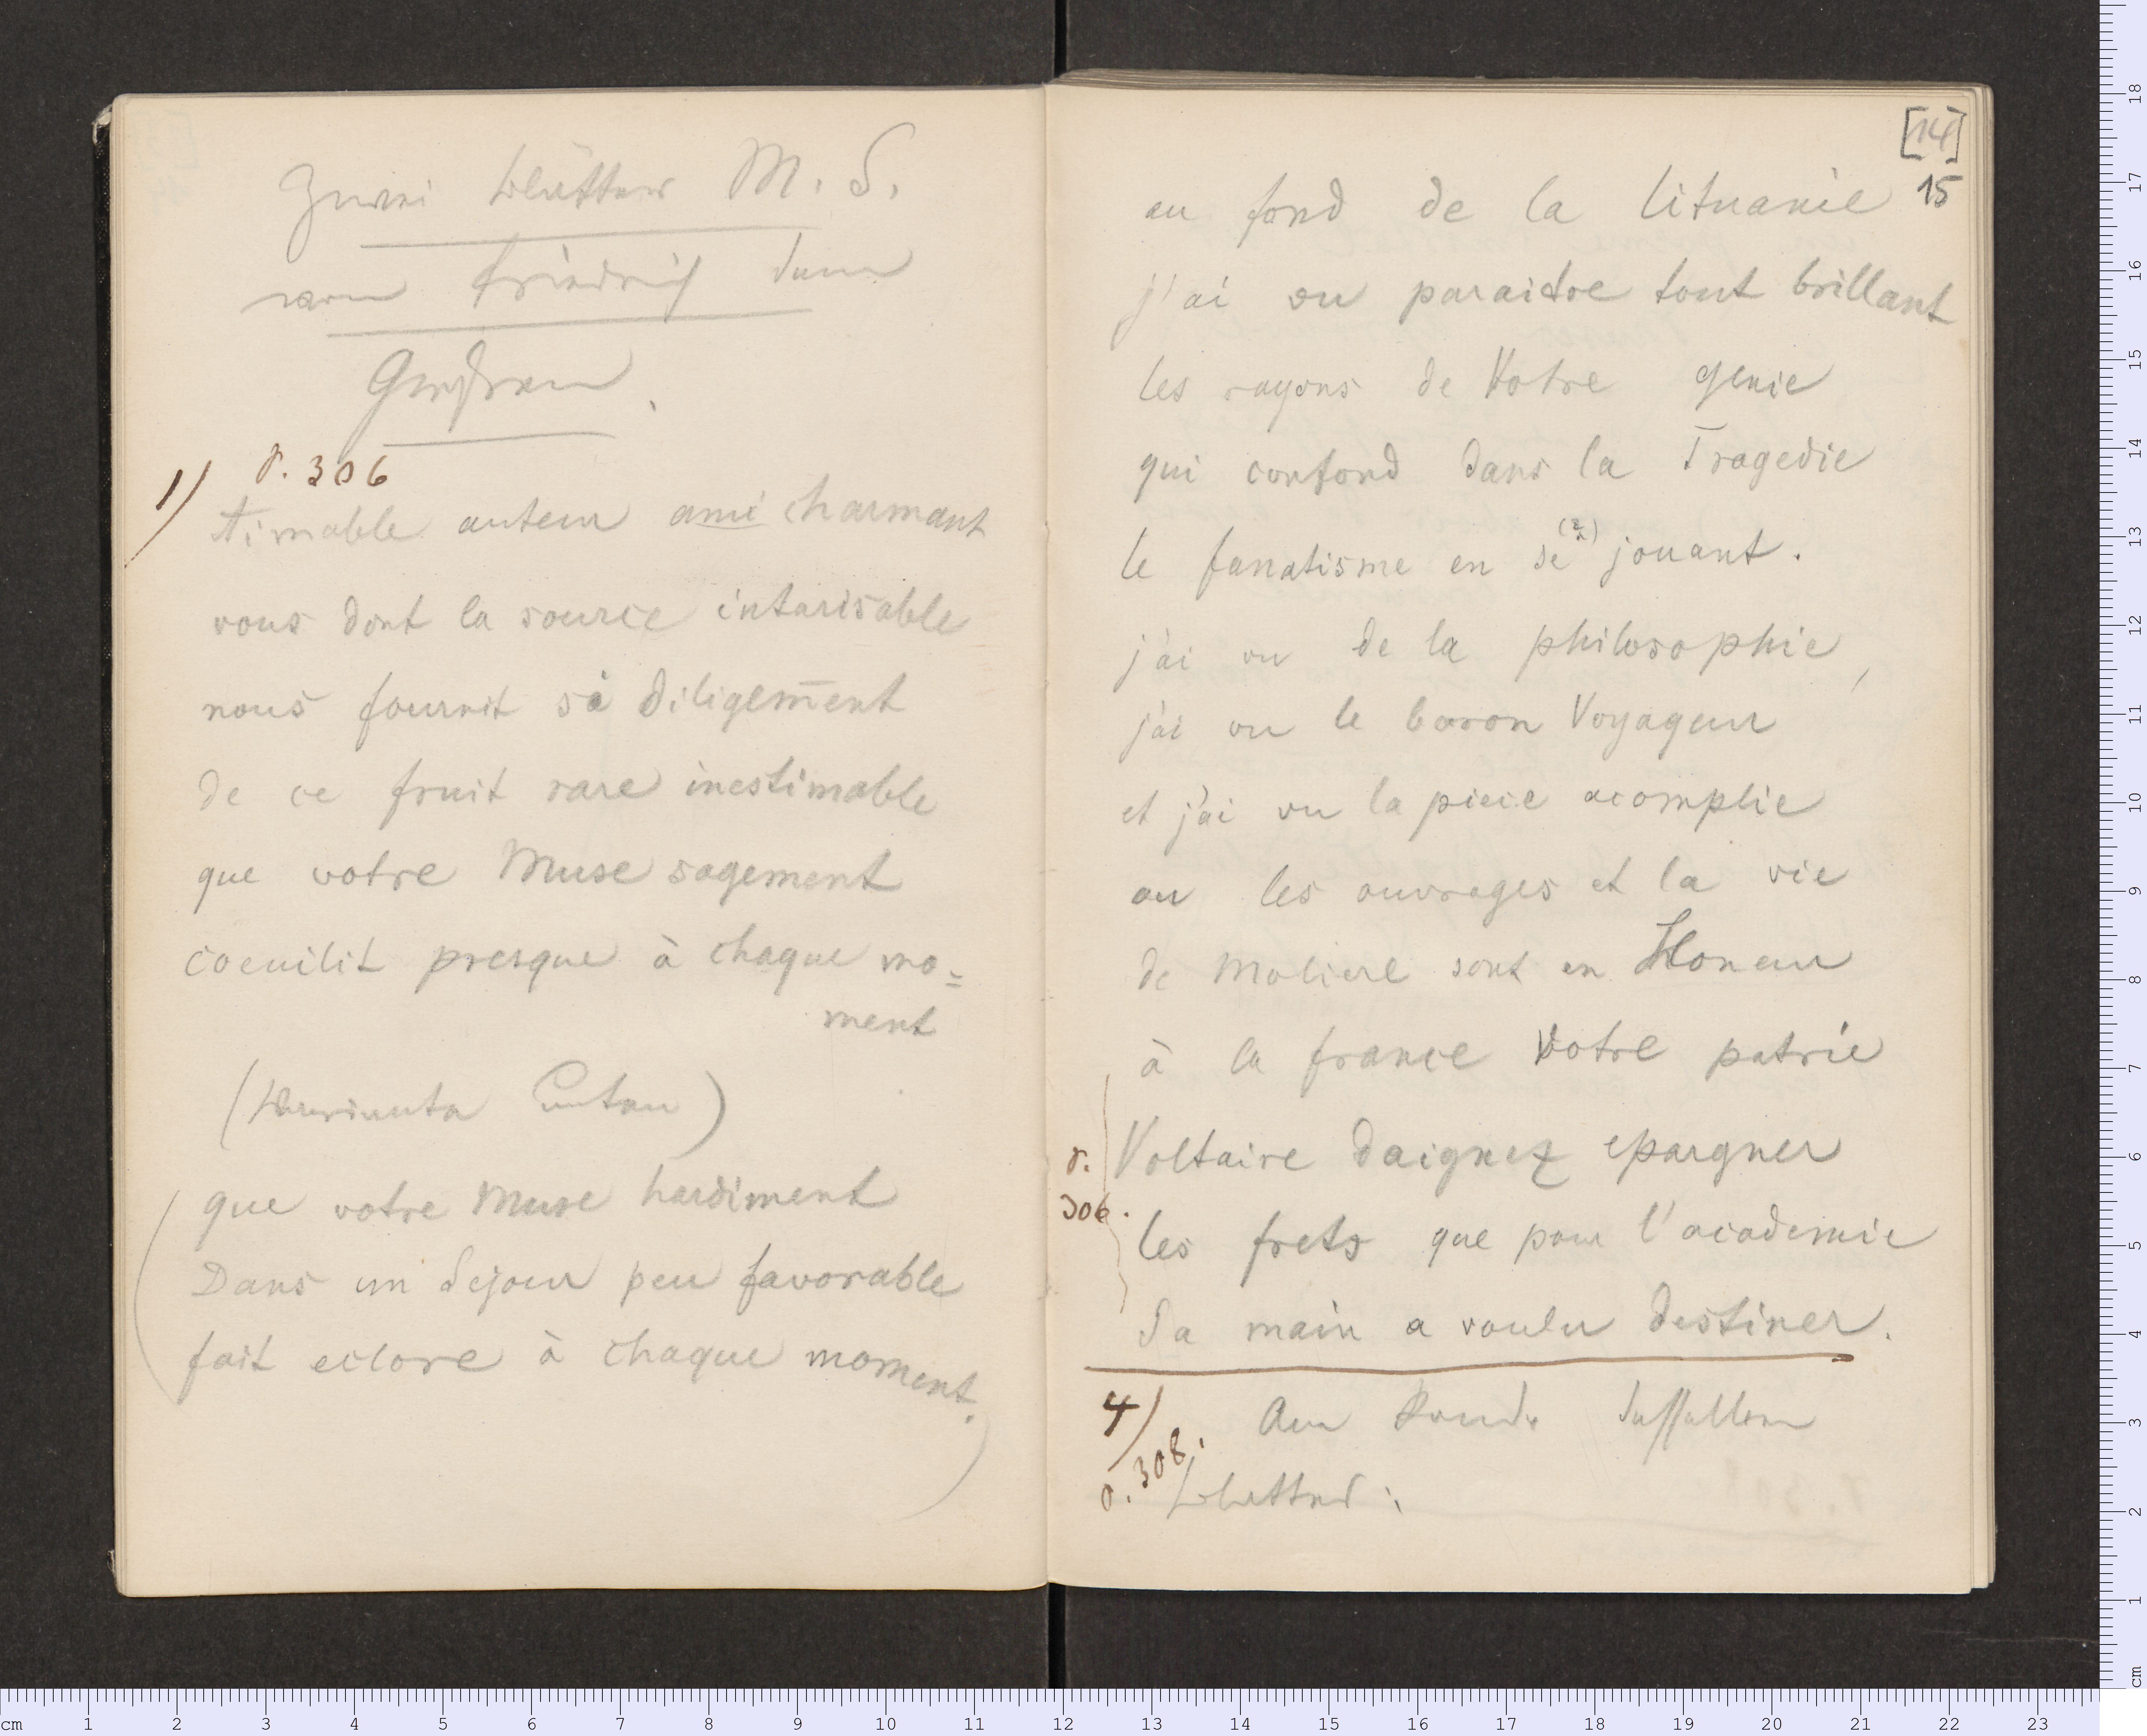 Zwei Blätter M. S.
von Friedrich dem
Großen.
1) S. 306
Aimable auteur ami charmant
vous dont la source intarisable
nous fournit si diligem̄ent
de ce fruit rare inestimable
que votre Muse sagement
coeuilit presque à chaque mo=
ment
(Variante Unten)
(que votre Muse hardiment
Dans un Sejour peu favorable
fait eclore à chaque moment.)
[14]
15
au fond de la Lituanie
j'ai vu paraitre tout brillant
les rayons de Votre genie
qui confond dans la Tragedie
le fanatisme en se (?) jouant.
j'ai vu de la philosophie,
j'ai vu le baron Voyageur
et j'ai vu la piece acomplie
ou les ouvrages et la vie
de Moliere sont en Honeur
à la france Votre patrie
S. 306.
Voltaire daignez epargner
les frets que pour l'academie
Sa main a voulu destiner.
4) S. 308.
Am Rande desselben
Blattes: